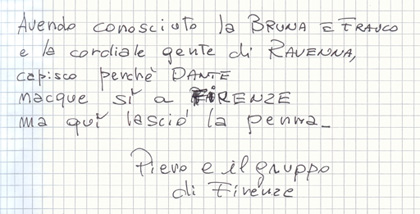 Avendo conosciuto la BRUNA E FRANCO
e la cordiale gente di RAVENNA,
capisco perchè DANTE
nacque sì a FIRENZE
ma quì lasciò la penna_
Piero e il gruppo
di Firenze